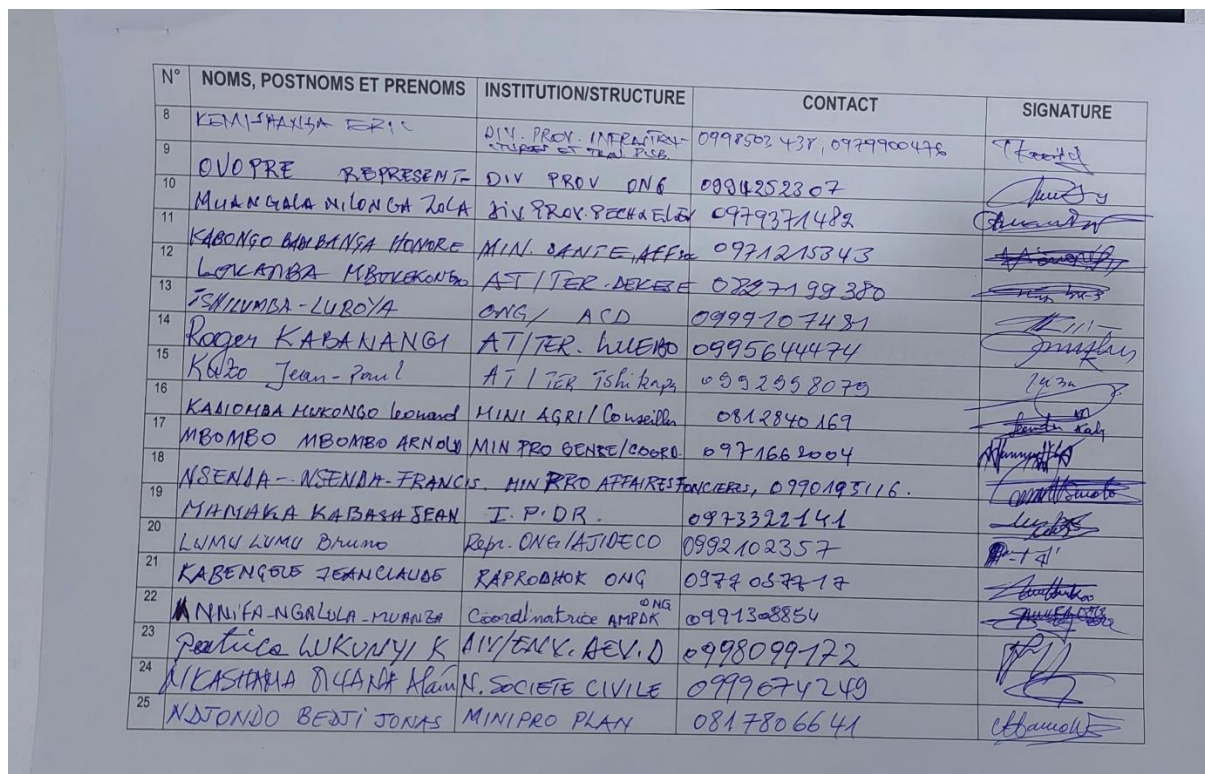 N° NOMS, POSTNOMS ET PRENOMS INSTITUTION/STRUCTURE CONTACT SIGNATURE
8 ERIC DIV. PROV. 0998502438, 0979900476
ET PUB.
9 OVOPRE REPRESENT- DIV PROV ONG 0994252307
10 MUANGALA NILONGA ZOLA DIV PROV. PECH & ELEV 0979371482
11 KABONGO HONORE MIN. SANTE, AFF 0971215343
12 AT/TER. DEKESE 0827199380
13 TSHILUMBA-LUBOYA ONG/ ACD 0999107481
14 Roger KABANANGI AT/TER. LUEBO 0995644474
15 Jean-Paul AT/TER Tshikapa 0992958079
16 KABIOMBA MUKONGO Leonard MINI AGRI/Conseiller 0812840169
17 MBOMBO MBOMBO ARNOLD MIN PRO GENRE/COORD. 0971662004
18 NSENDA-NSENDA-FRANCIS. MIN PRO AFFAIRES FONCIERES, 0990193116.
19 MAMAKA KABASA JEAN I.P.DR. 0973322141
20 LUMU LUMU Bruno Repr. ONG/AJIDECO 0992102357
21 KABENGELE JEANCLAUDE RAPRODHOK ONG 0977037717
22 ANNIFA-NGALULA-MUANZA Coordinatrice AMPDK ONG 0991308854
23 Patrice LUKUNYI K DIV/ENV. DEV. D 0998099172
24 Alain N. SOCIETE CIVILE 0999674249
25 NDJONDO BEDJI JONAS MINIPRO PLAN 0817806641